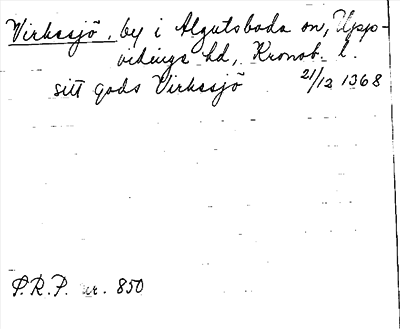 Virksjö, by i Algutsboda sn, Upp-
vidinge hd, Kronob. l.
sitt gods Virksjö 21/12 1368
P.R.P. nr. 850